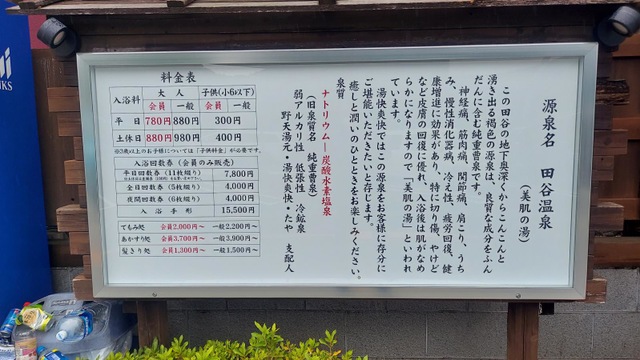 源泉名　田谷温泉
（美肌の湯）
この田谷の地下奥深くからこんこんと
湧き出る褐色の源泉は、良質な成分をふん
だんに含む純重曹泉です。
神経痛、筋肉痛、関節痛、肩こり、うち
み、慢性消化器病、冷え性、疲労回復、健
康増進に効果があり、特に切り傷、やけど
など皮膚の回復に優れ、入浴後は肌がなめ
らかになりますので「美肌の湯」といわれ
ています。
湯快爽快ではこの源泉をお客様に存分に
ご堪能いただきたいと存じます。
癒しと潤いのひとときをお楽しみください。
泉質
ナトリウム―炭酸水素塩泉
（旧泉質名　純重曹泉）
弱アルカリ性　低張性　冷鉱泉
野天湯元・湯快爽快・たや　支配人
料金表
入浴料 大人 子供(小6以下)
会員 一般 会員 一般
平日 780円 880円 300円
土休日 880円 980円 400円
※3歳以上のお子様については「子供料金」が必要です。
入浴回数券（会員のみ販売）
平日回数券（11枚綴り） 7,800円
全日回数券（5枚綴り） 4,000円
夜間回数券（6枚綴り） 4,000円
入浴手形 15,500円
てもみ処 会員2,000円～ 一般2,200円～
あかすり処 会員3,700円～ 一般3,900円～
髪きり処 会員1,300円～ 一般1,500円～